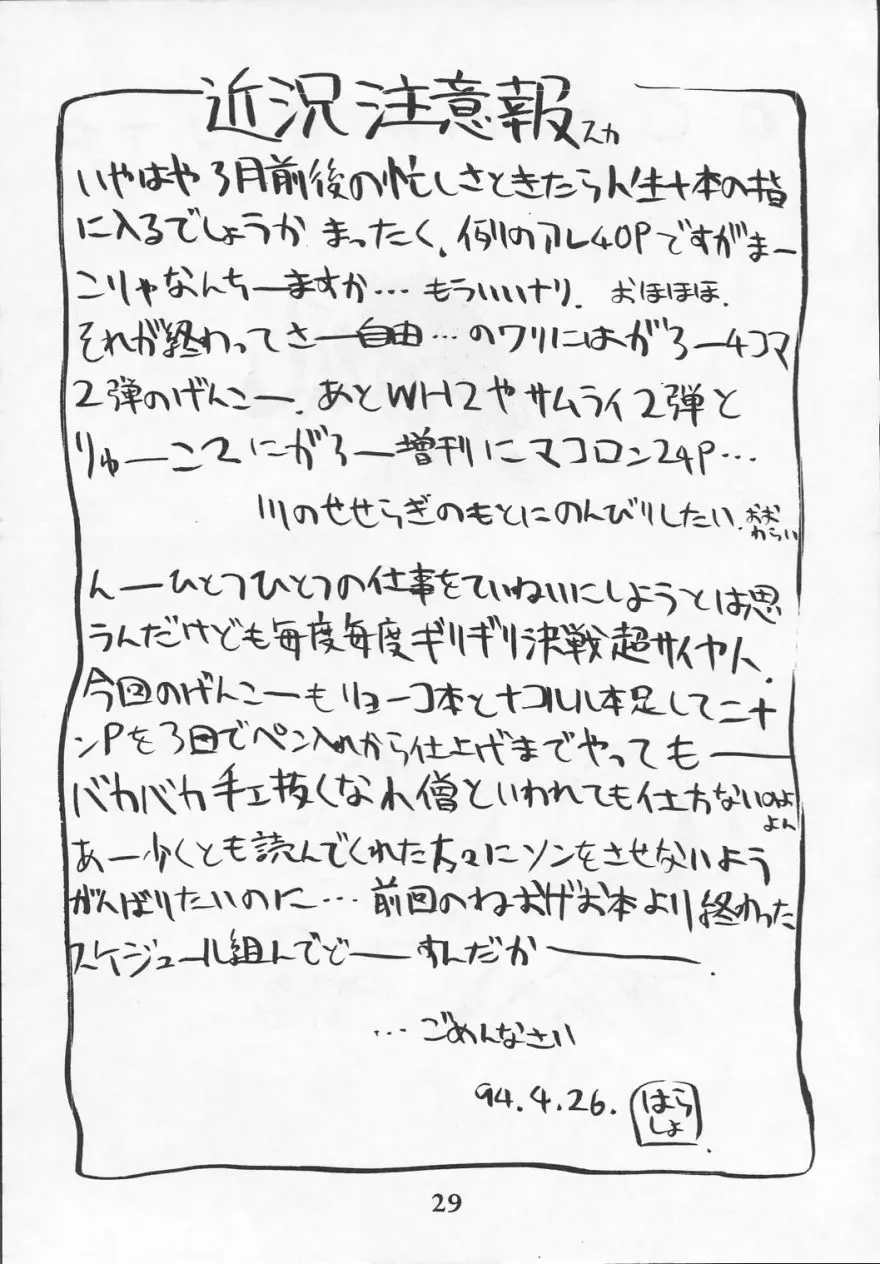 近況注意報スカ
いやはや3月前後の忙しさときたら人生十本の指
に入るでしょうか まったく、例のアレ40Pですがまー
こりゃなんちーますか…もういいナリ. おほほほ.
それが終わってさー自由…のワリにはがろー4コマ
2弾のげんこー.あとWH2やサムライ2弾と
りゅーこ2にがろー増刊にマコロン24P…
川のせせらぎのもとにのんびりしたい.おお
わらい
んーひとつひとつの仕事をていねいにしようとは思
うんだけども毎度毎度ギリギリ決戦超サイヤ人.
今回のげんこーもリョーコ本とナコルル本足して二十
ンPを3日でペン入れから仕上げまでやっても――
バカバカ手エ抜くなれ僧といわれても仕方ないのよ
よん
あー少くとも読んでくれた方々にソンをさせないよう
がんばりたいのに…前回のねおげお本より終わった
スケジュール組んでどーすんだか――.
…ごめんなさい
94.4.26.
はら
しょ
29